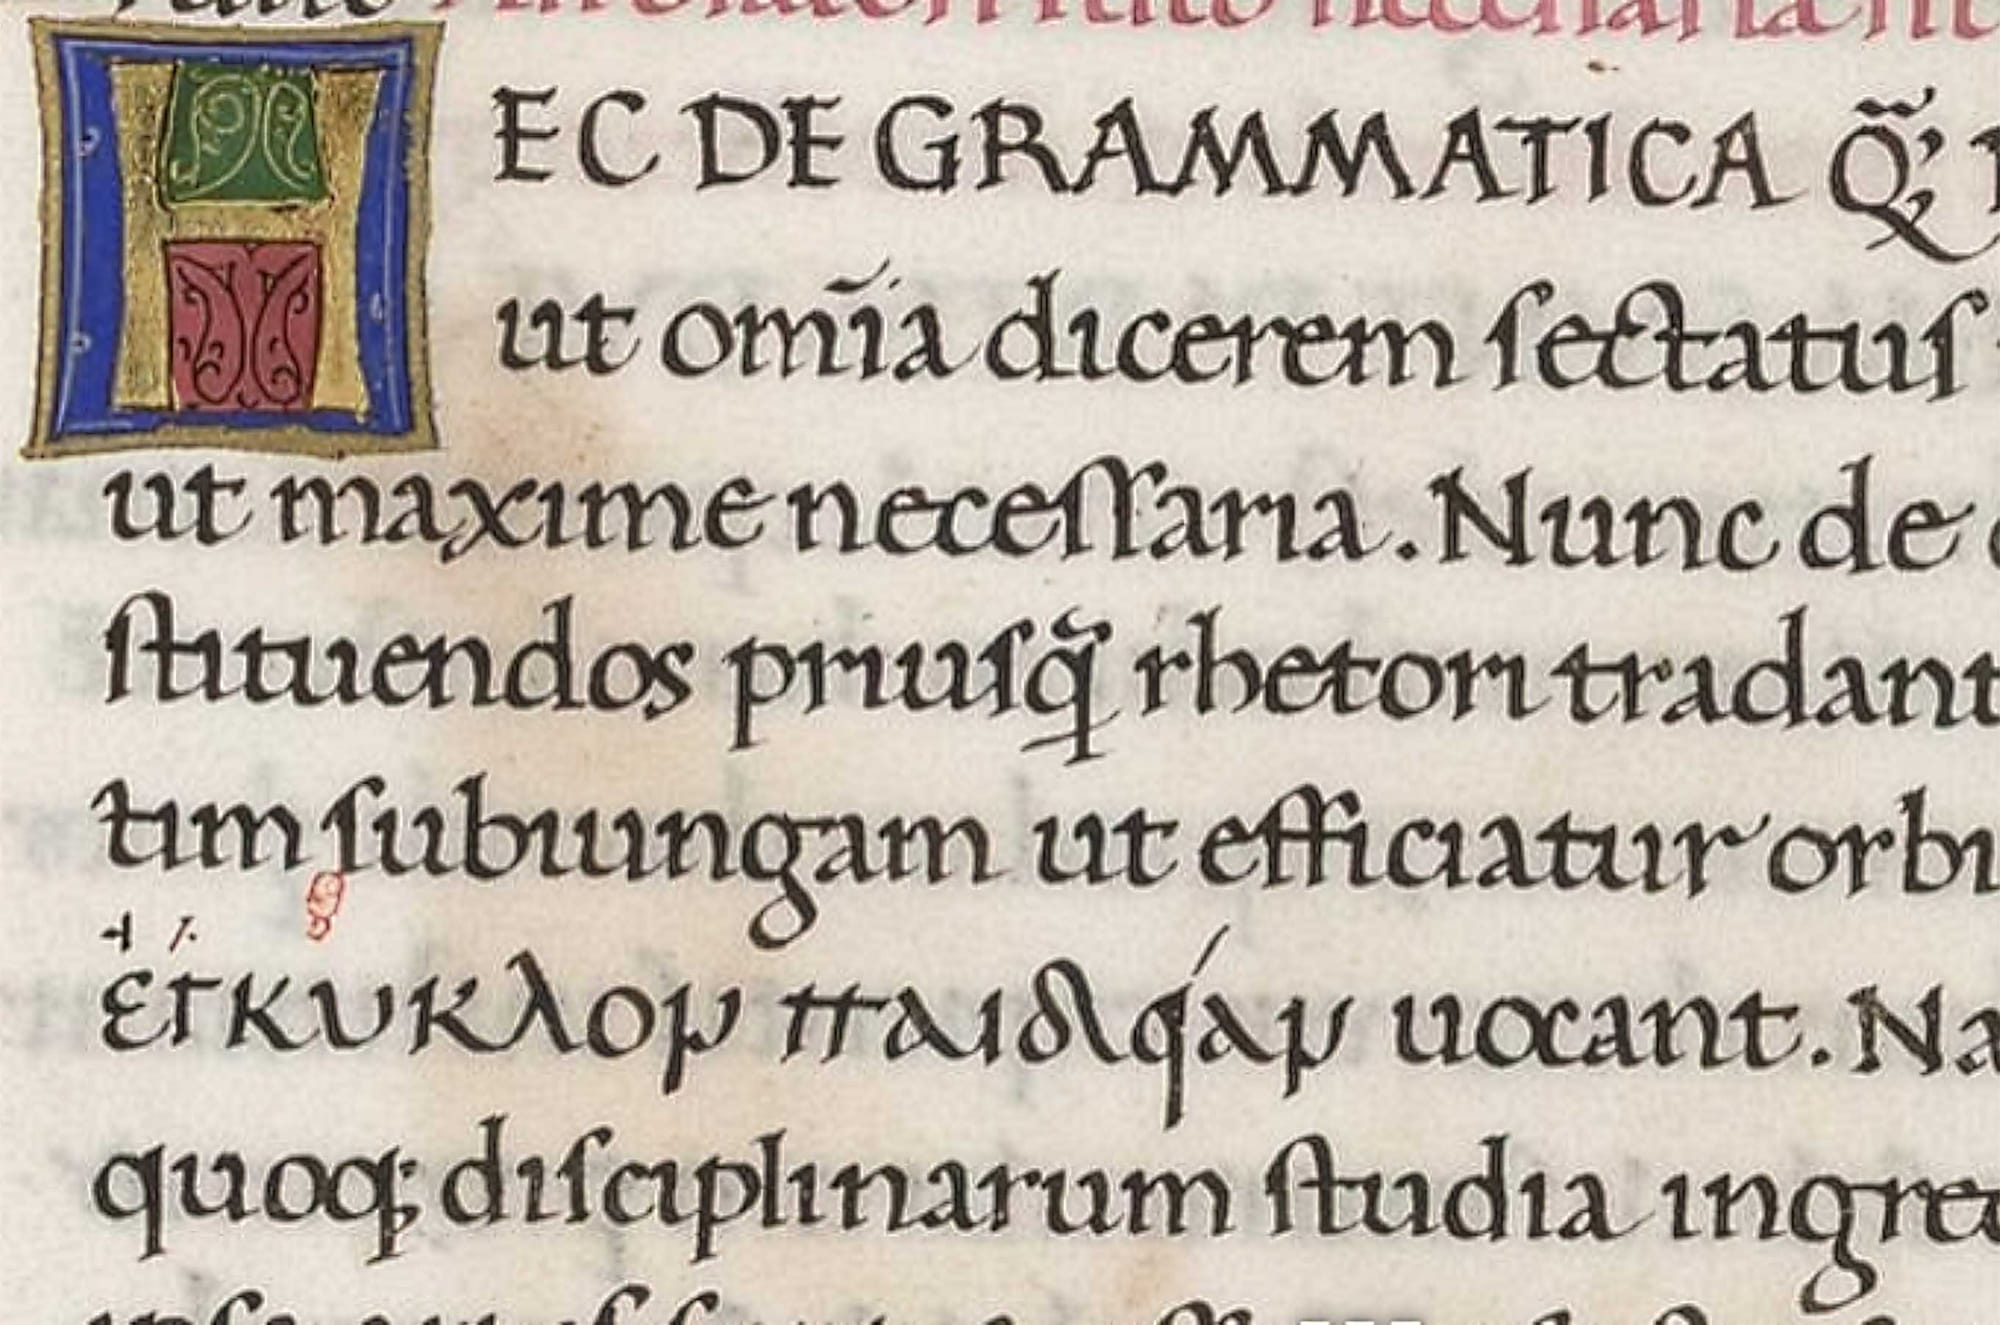 HEC DE GRAMMATICA Q̃;
ut om̃ia dicerem sectatus
ut maxime necessaria. Nunc de
stituendos priusq̃ rhetori tradant
tim subiungam ut efficiatur orbi
ἐγκυκλον παιδείαν uocant. Na
quoq; disciplinarum studia ingred